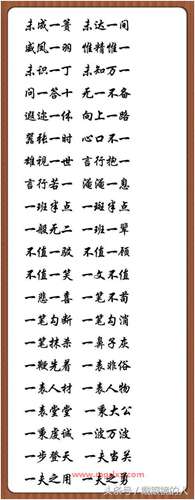 未成一篑 未达一间
威凤一羽 惟精惟一
未识一丁 未知万一
问一答十 无一不备
遐迩一体 向上一路
嚣张一时 心口不一
雄视一世 言行抱一
言行若一 淹淹一息
一班半点 一斑半点
一般无二 一斑一辈
不值一驳 不值一顾
不值一笑 一文不值
一悲一喜 一笔不苟
一笔勾断 一笔勾消
一笔抹杀 一鼻子灰
一鞭先着 一表非俗
一表人材 一表人物
一表堂堂 一秉大公
一秉虔诚 一波万波
一步登天 一夫当关
一夫之用 一夫之勇